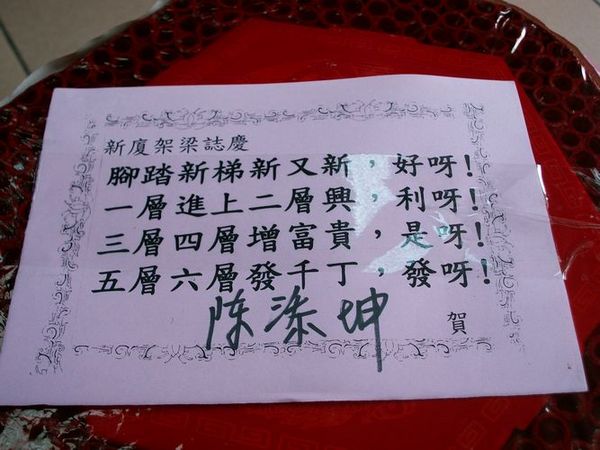 新廈架梁誌慶
腳踏新梯新又新，好呀!
一層進上二層興，利呀!
三層四層增富貴，是呀!
五層六層發千丁，發呀!
陈添坤 賀